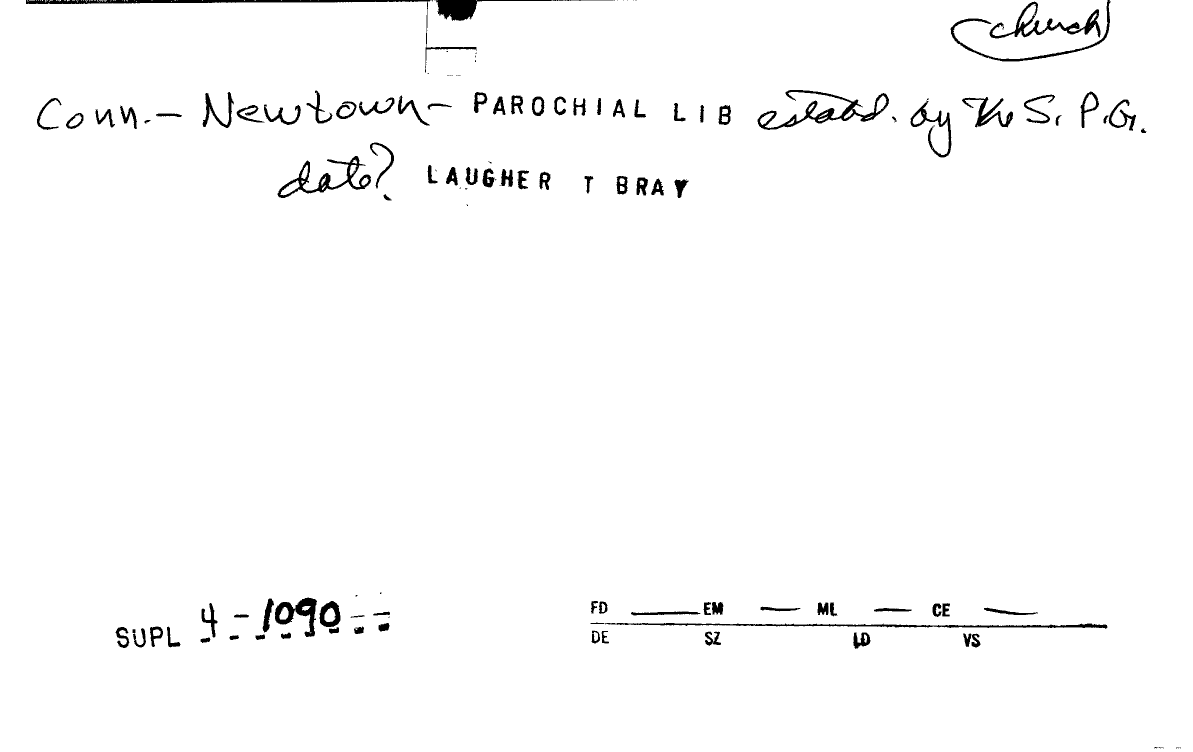 church
Conn.— Newtown— PAROCHIAL LIB estabd. by the S. P. G.
date? LAUGHER T BRAY
SUPL 4-1090--
FD EM ML CE
DE SZ LD VS